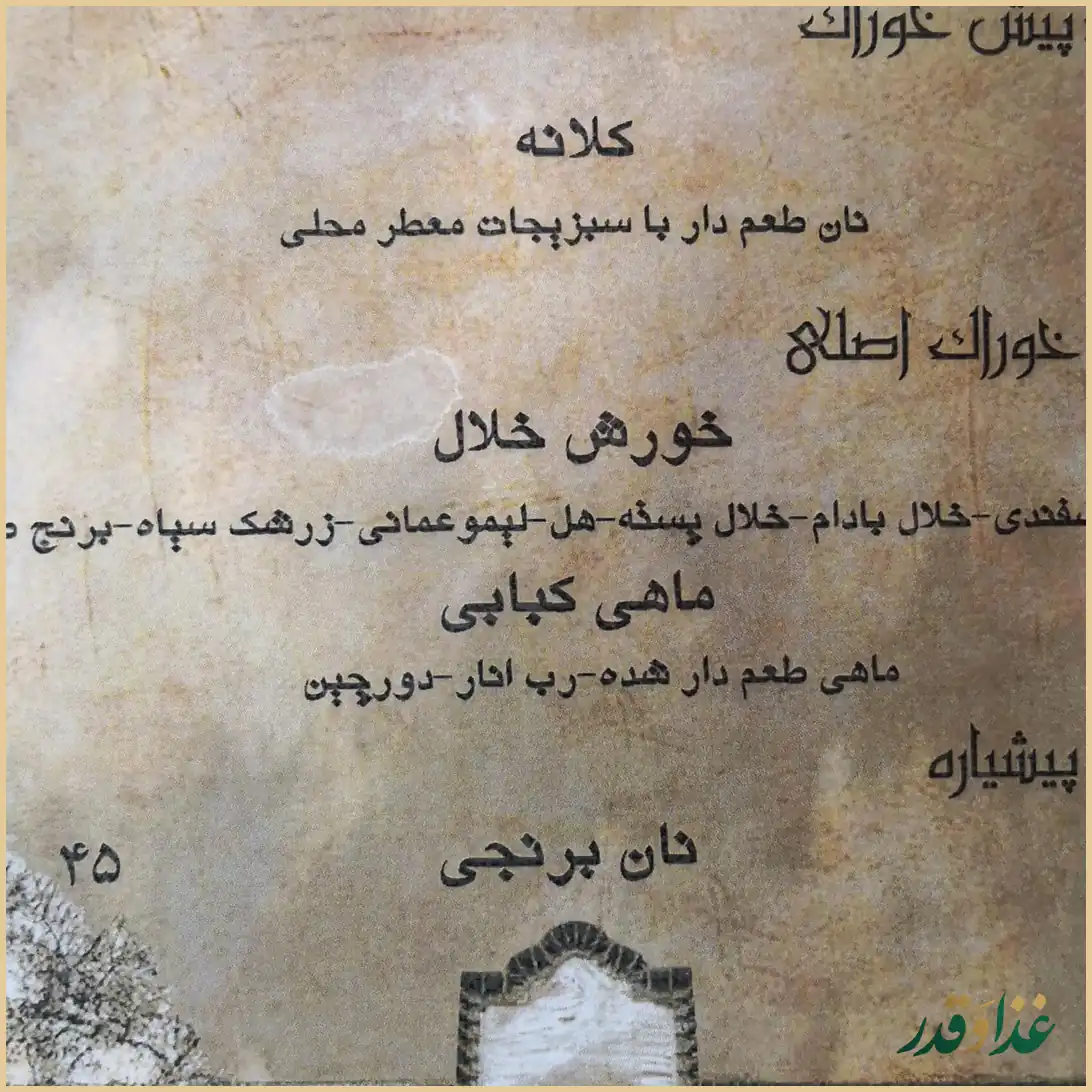 پیش خوراک
کلانه
نان طعم دار با سبزیجات معطر محلی
خوراک اصلی
خورش خلال
سفندی-خلال بادام-خلال پسته-هل-لیمو عمانی-زرشک سیاه-برنج
ماهی کبابی
ماهی طعم دار شده-رب انار-دورچین
پیشیاره
نان برنجی
۴۵
غذا و قدر